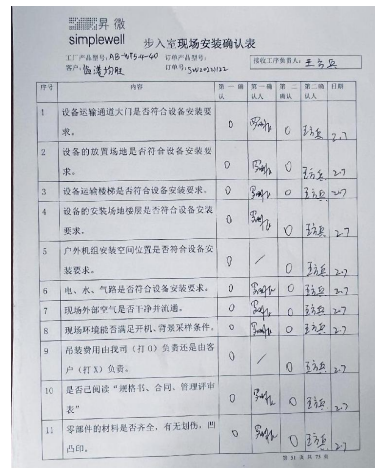 昇微
simplewell
步入室现场安装确认表
工厂产品型号: 订单产品型号:
接收工序负责人: 王方兵
客户: 订单号:
序号 内容 第一确认 第一确认人 第二确认 第二确认人 日期
1 设备运输通道大门是否符合设备安装要
求。 0 0 王方兵 2.7
2 设备的放置场地是否符合设备安装要
求。 0 0 王方兵 2.7
3 设备运输楼梯是否符合设备安装要求。 0 0 王方兵 2.7
4 设备的安装场地楼层是否符合设备安装
要求。 0 0 王方兵 2.7
5 户外机组安装空间位置是否符合设备安
装要求。 0 / 0 王方兵 2.7
6 电、水、气路是否符合设备安装要求。 0 0 王方兵 2.7
7 现场外部空气是否干净并流通。 0 0 王方兵 2.7
8 现场环境能否满足开机、背景采样条件。 0 0 王方兵 2.7
9 吊装费用由我司（打 O）负责还是由客
户（打 X）负责。 0 / 0 王方兵 2.7
10 是否已阅读“规格书、合同、管理评审
表” 0 0 王方兵 2.7
11 零部件的材料是否齐全，有无划伤，凹
凸印。 0 0 王方兵 2.7
第 51 页 共 73 页